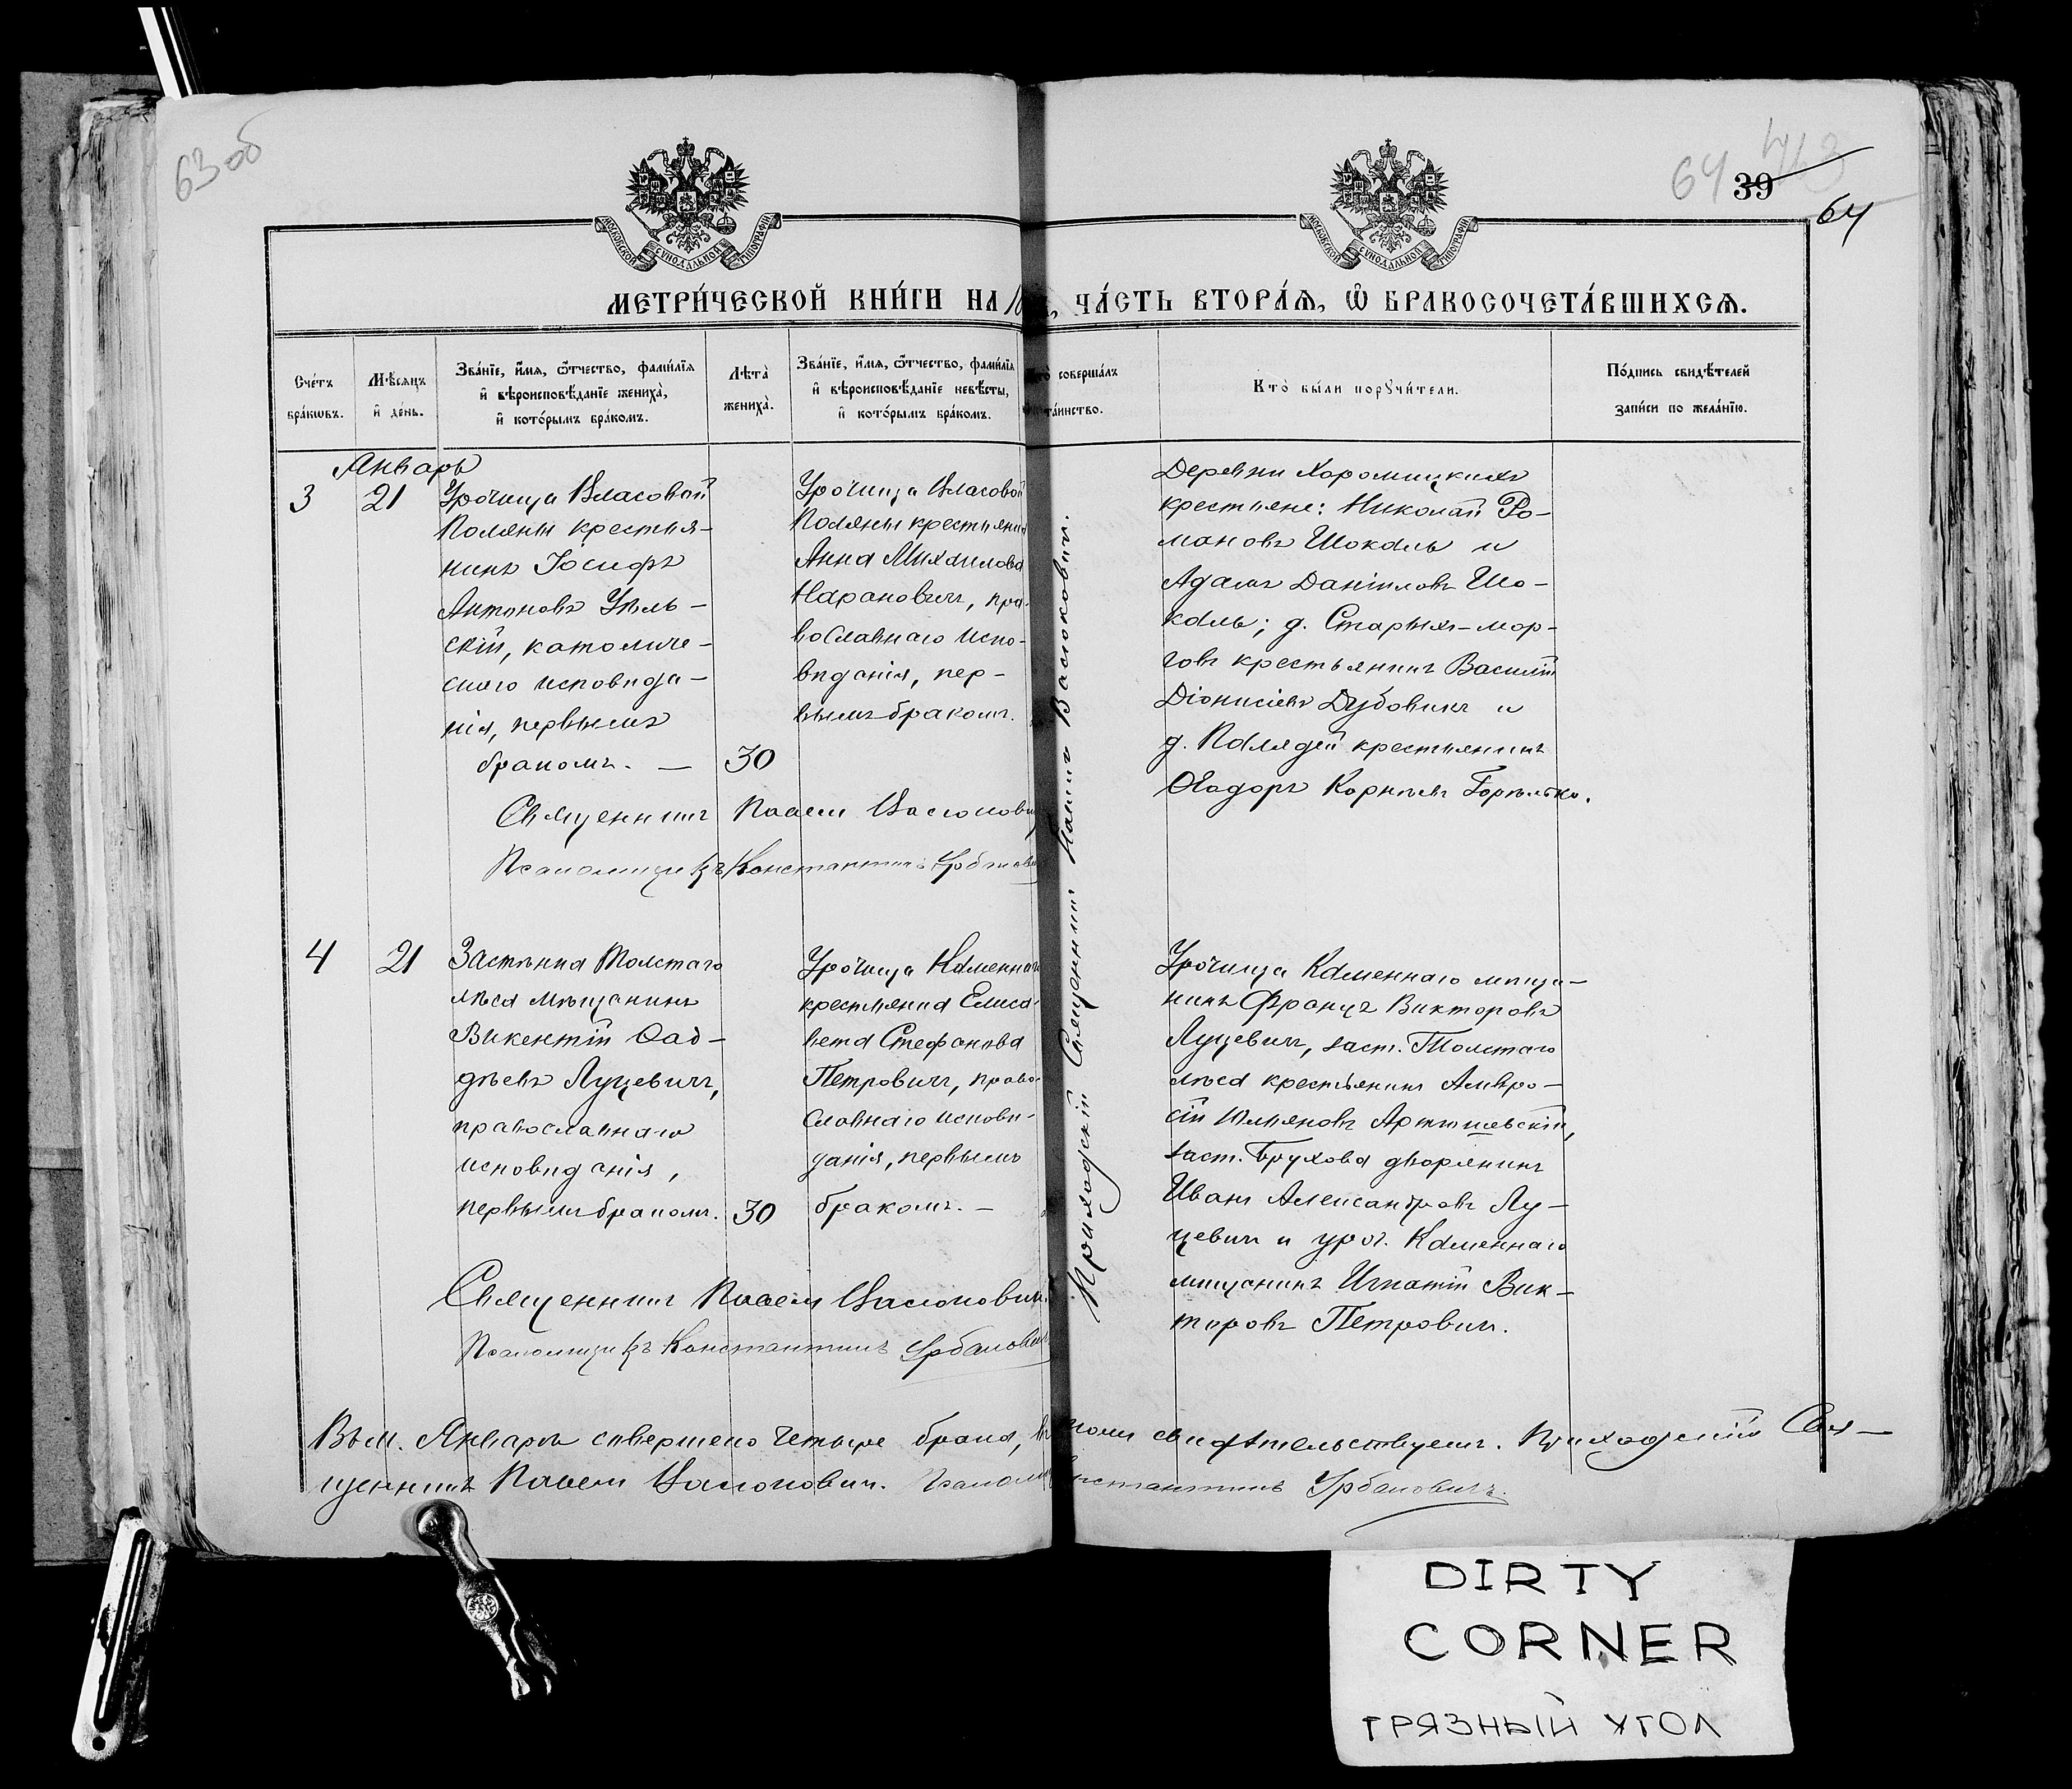 63об
64
39
64
МОСКОВСКОЙ СѴНОДАЛЬНОЙ ТИПОГРАФІИ
МОСКОВСКОЙ СѴНОДАЛЬНОЙ ТИПОГРАФІИ
МЕТРИ́ЧЕСКОЙ КНИ́ГИ НА
ЧА́СТЬ ВТОРА́Ѧ, Ѽ БРАКОСОЧЕТА́ВШИХСѦ.
Сче́тъ
бра́кѡвъ.
Мѣ́сяцъ
и҆ де́нь.
Зва́нїе, и҆́мя, ѻ҆́тчество, фами́лїя
и҆ вѣроисповѣ́данїе жениха̀,
и҆ кото́рымъ бра́комъ.
Лѣта̀
жениха̀.
Зва́нїе, и҆́мя, ѻ҆́тчество, фами́лїя
и҆ вѣроисповѣ́данїе невѣ́сты,
и҆ кото́рымъ бра́комъ.
соверша́лъ
та́инство.
Кто̀ бы́ли порꙋчи́тели.
По́дпись свидѣ́телей
за́писи по жела́нїю.
Январь
3
21
Урочища Власовой
Поляны крестья-
нинъ Іосифъ
Антоновъ
скій, католиче-
скаго исповѣда-
нія, первымъ
бракомъ. —
30
Урочища Власовой
Поляны крестьянка
Анна Михаилова
Наранович, пра-
вославнаго испо-
вѣданія, пер-
вымъ бракомъ.
Деревни Хоромицкихъ
крестьяне: Николай Ро-
мановъ Шокаль и
Адамъ Даніиловъ Шо-
каль; д. Старыхъ-мор-
говъ крестьянинъ Василій
Діонисіевъ Дубовикъ и
д. Полядей крестьянинъ
Ѳеодоръ Корнѣевъ
Священникъ Павелъ Васюкович
Псаломщикъ Константинъ Урбанович
Приходскій Священникъ Павелъ Васюкович.
4
21
Застѣнка Толстаго
лѣса мѣщанинъ
Викентій Ѳад-
дѣевъ Луцевич,
православнаго
исповѣданія,
первымъ бракомъ.
30
Урочища Каменнаго
крестьянка Елиса-
вета Стефанова
Петрович, право-
славнаго исповѣ-
данія, первымъ
бракомъ. —
Урочища Каменнаго мѣща-
нинъ Францъ Викторовъ
Луцевич, заст. Толстаго
лѣса крестьянинъ Амвро-
сій Ильяновъ Артишевскій,
заст. Брухова дворянинъ
Иванъ Александровъ Лу-
цевич и уроч. Каменнаго
мѣщанинъ Игнатій Вик-
торовъ Петрович.
Священникъ Павелъ Васюкович.
Псаломщикъ Константинъ Урбанович
Въ м. Январѣ совершено четыре брака, въ чемъ свидѣтельствуемъ. Приходскій Свя-
щенникъ Павелъ Васюкович. Константинъ Урбановичъ.
DIRTY
CORNER
ГРЯЗНЫЙ УГОЛ